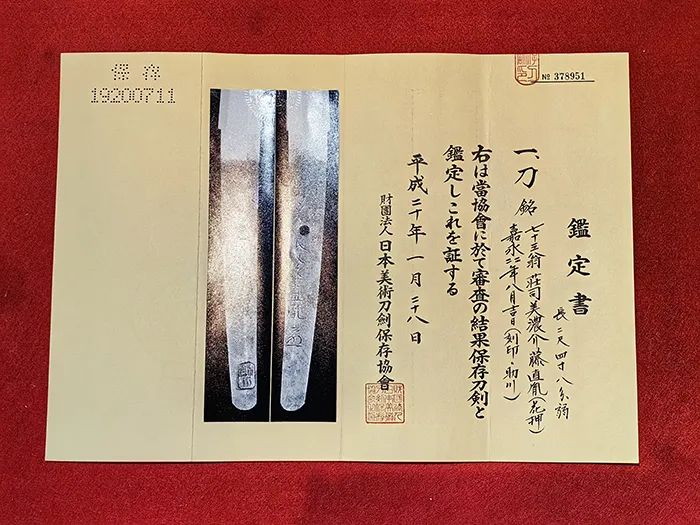 保存
19200711
№ 378951
鑑定書
長二尺四寸八分弱
一、刀 銘 七十三翁荘司美濃介藤直胤(花押)
嘉永二年八月吉日(刻印・助川)
右は當協會に於て審査の結果保存刀剣と
鑑定しこれを証する
平成二十年一月二十八日
財團法人 日本美術刀劍保存協會